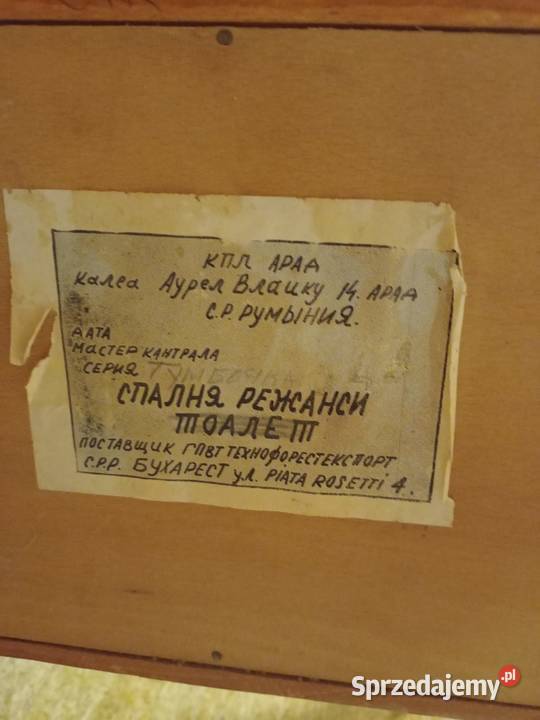 КПЛ АРАД
Калеа Аурел Влаику 14. АРАД
С.Р. РУМЫНИЯ.
ДАТА
МАСТЕР КАНТРАЛА
СЕРИЯ ТУМБОЧКА
СПАЛНЯ РЕЖАНСИ
ТОАЛЕТ
ПОСТАВЩИК ГПВТ ТЕХНОФОРЕСТЕКСПОРТ
С.Р.Р. БУХАРЕСТ ул. PIATA ROSETTI 4.
Sprzedajemy.pl